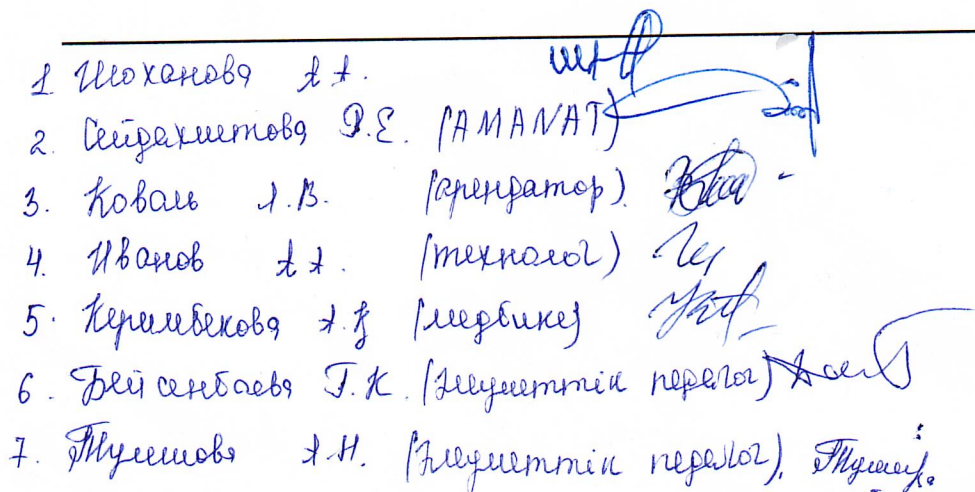 1. Шоханова А.А.
2. Сейдахметова Р.Е. (AMANAT)
3. Коваль А.В. (арендатор)
4. Иванов А.А. (технолог)
5. Керимбекова А.Қ (медбике)
6. Бейсенбаева Г.К. (Әлеуметтік педагог)
7. Тулешова А.Н. (Әлеуметтік педагог).